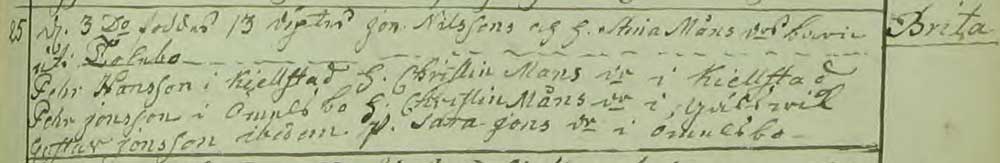 25 d. 3 Do föddes 13 döptes Jon Nilssons och h. Stina Måns drs barn Brita
uti Tolsbo
Pehr Hansson i Kiellstad H. Christin Måns dr i Kiellstad
Pehr jonsson i Omelsbo H. Christin Måns dr i
Gustav jonsson ibidem. p. Sara jons dr i Omelsbo